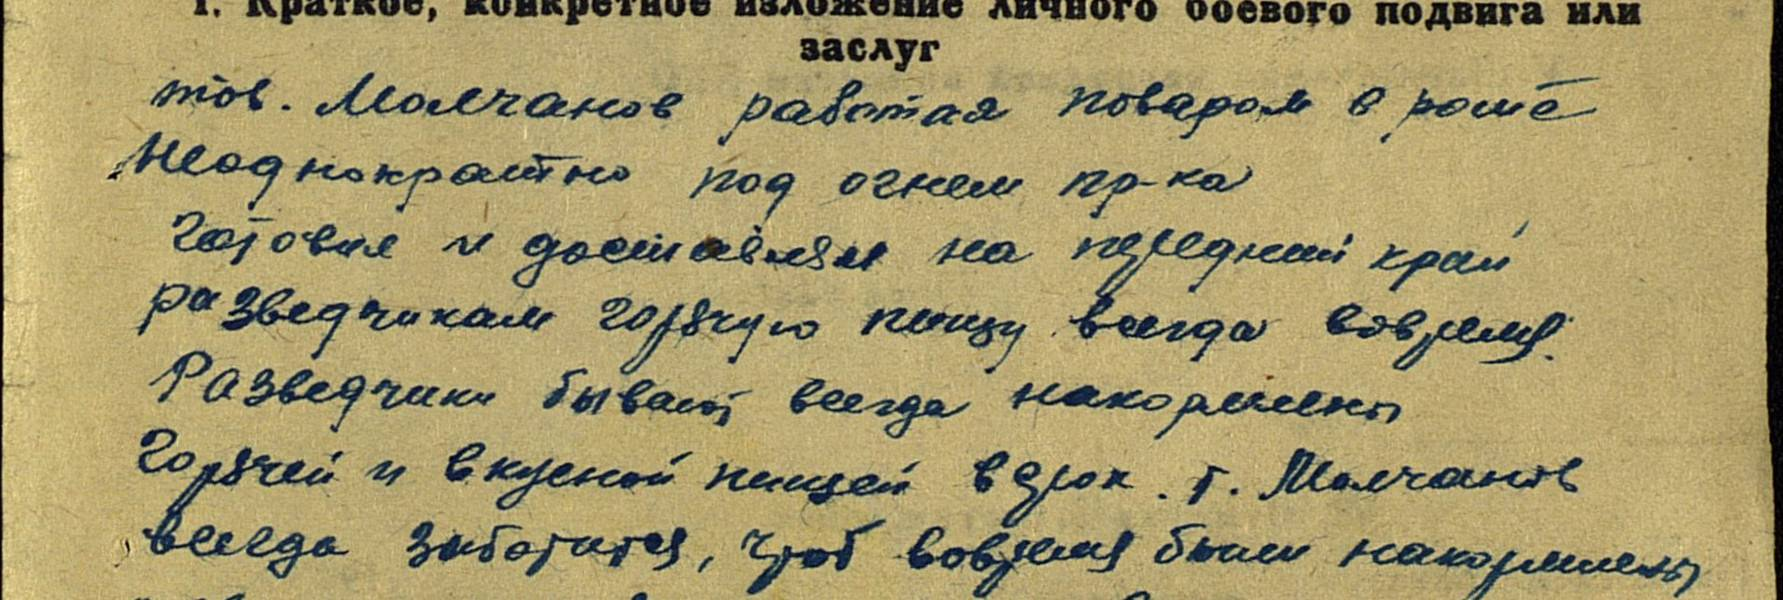 1. Краткое, конкретное изложение личного боевого подвига или
заслуг
тов. Молчанов работая поваром в роте
Неоднократно под огнем пр-ка
готовил и доставлял на передний край
разведчикам горячую пищу всегда вовремя.
Разведчики бывают всегда накормлены
горячей и вкусной пищей в срок. т. Молчанов
всегда заботится, чтоб вовремя были накормлены